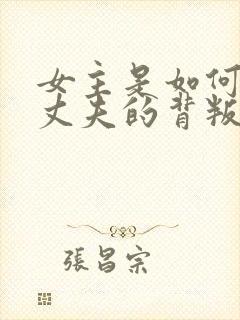 女主是如何
丈夫的背叛
張昌宗